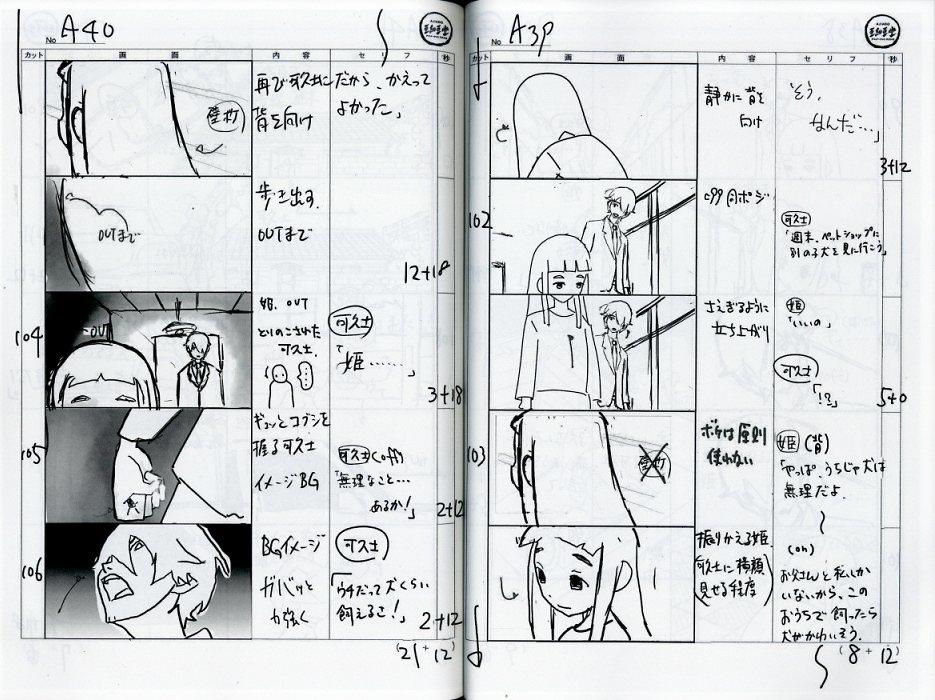 No A39
カット 画面 内容 セリフ 秒
静かに背を
向け
「そう、
なんだ…」
3+12
102
c99同ポジ
可久士
「週末、ペットショップに
別の子犬を見に行こう」
さえぎるように
立ち上がり
姫
「いいの」
可久士
「!?」
5+0
103
ボケは原則
使わない
姫(背)
「やっぱ、うちじゃ犬は
無理だよ。
振りかえる姫
可久士に横顔
見せる程度
(on)
お父さんと私しか
いないから、この
おうちで飼ったら
犬がかわいそう。
(8+12)
No A40
カット 画面 内容 セリフ 秒
再び可久士に
背を向け
だから、かえって
よかった」
歩き出す。
OUTまで
OUTまで
12+18
104
OUT
姫、OUT
とりのこされた
可久士。
可久士
「姫……」
3+18
105
ギュッとコブシを
握る可久士
イメージBG
可久士(off)
「無理なこと…
あるか!」
2+12
106
BGイメージ
ガバッと
力強く
可久士
「ウチだって犬くらい
飼えるさ!」
2+12
(21+12)